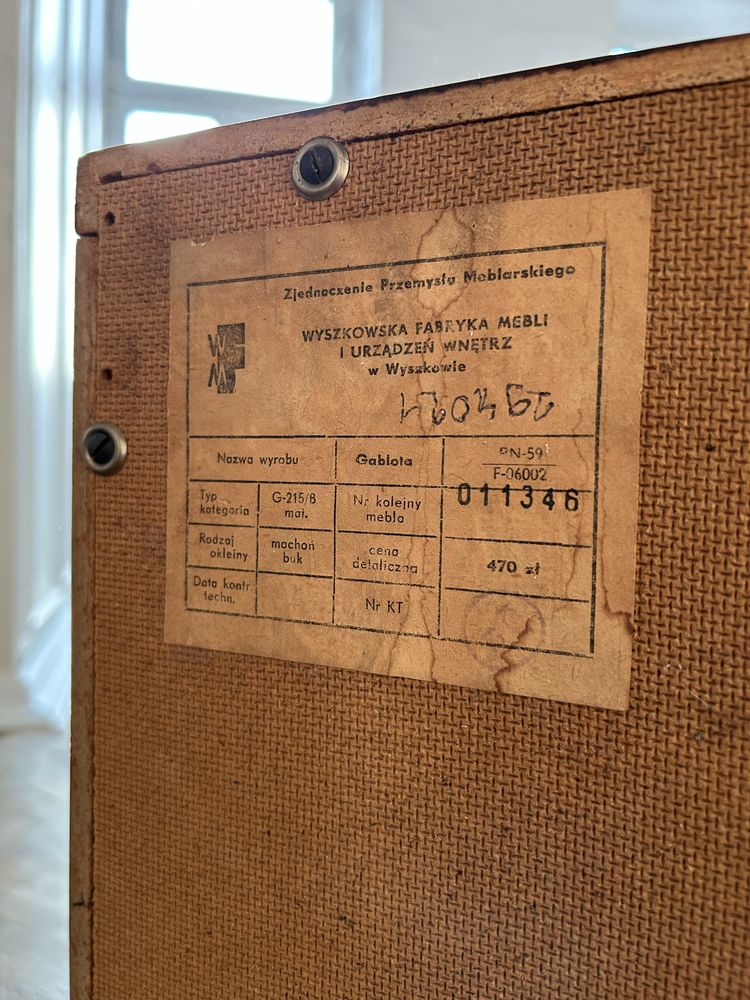 Zjednoczenie Przemysłu Meblarskiego
WFM
WYSZKOWSKA FABRYKA MEBLI
I URZĄDZEŃ WNĘTRZ
w Wyszkowie
Nazwa wyrobu Gablota PN-59
F-06002
Typ kategoria G-215/B mat. Nr kolejny mebla 011346
Rodzaj okleiny machoń buk cena detaliczna 470 zł
Data kontr. techn. Nr KT